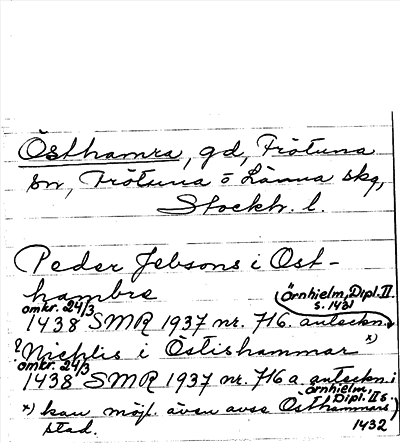 Östhamra, gd, Frötuna
sn, Frötuna o Länna skg,
Stockh. l.
Peder Jebsons i Öst-
hambre
(Örnhielm, Dipl. II.
s. 1431
omkr. 24/3
1438 SMR 1937 nr. 716. anteckn.)
? Nichlis i Östishammar x)
omkr. 24/3
1438 SMR 1937 nr. 716 a anteckn. i
Örnhielm,
Dipl. II s.
1432
x) kan möjl. även avse Östhammars
stad.